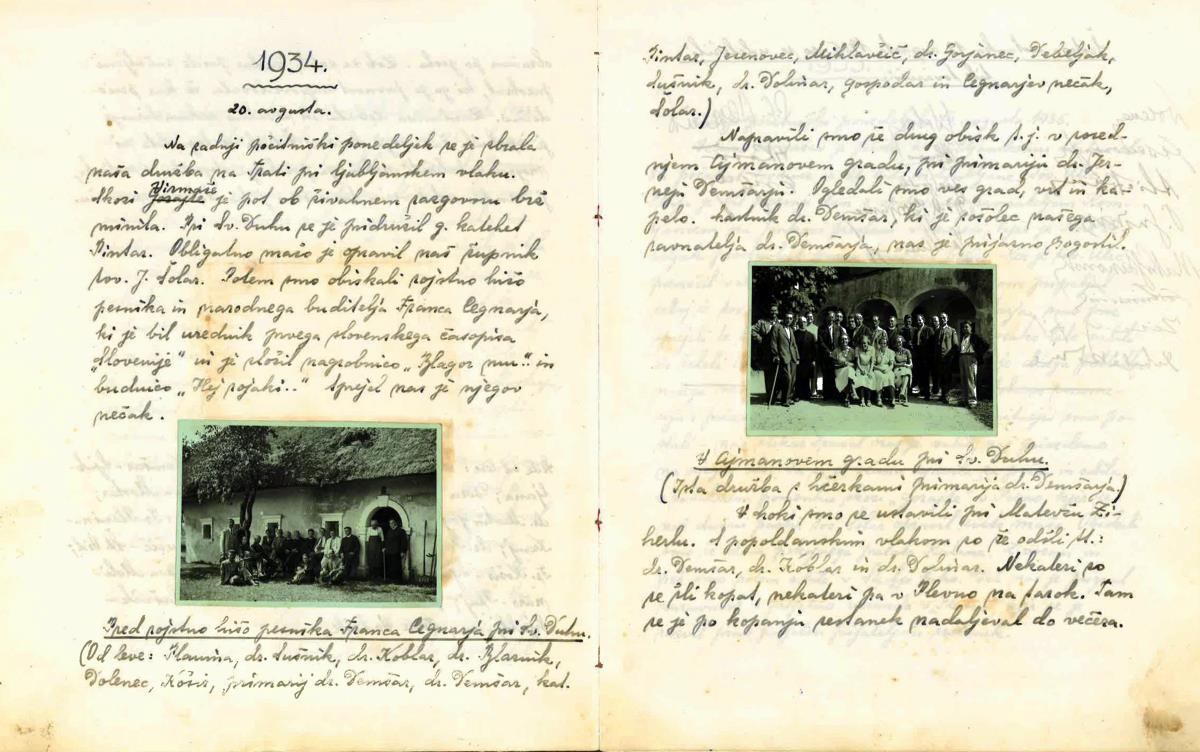 1934.
20. avgusta.
Na zadnji počitniški ponedeljek se je zbrala
naša družba na Trati pri ljubljanskem vlaku.
Skozi Virmaše je pot ob živahnem razgovoru brž
minila. Pri Sv. Duhu se je pridružil g. katehet
Pintar. Obligatno mašo je opravil naš župnik
tov. J. Šolar. Potem smo obiskali rojstno hišo
pesnika in narodnega buditelja Franca Cegnarja,
ki je bil urednik prvega slovenskega časopisa
„Slovenije" in je zložil nagrobnico „Blagor mu.." in
budnico „Hej rojaki.." Sprejel nas je njegov
nečak.
Pred rojstno hišo pesnika Franca Cegnarja pri Sv. Duhu.
(Od leve: Planina, dr. Sušnik, dr. Koblar, dr. Blaznik,
Dolenec, Košir, primarij dr. Demšar, dr. Demšar, kat.
Pintar, Jerenovec, Miklavčič, dr. Gorjanec, Debeljak,
Sušnik, dr. Dolinar, gospodar in Cegnarjev nečak,
Šolar.)
Napravili smo še drug obisk t. j. v sosed-
njem Ajmanovem gradu, pri primariju dr. Jer-
neju Demšarju. Ogledali smo ves grad, vrt in ka-
pelo. Lastnik dr. Demšar, ki je sošolec našega
ravnatelja dr. Demšarja, nas je prijazno pogostil.
V Ajmanovem gradu pri Sv. Duhu.
(Ista družba s hčerkami primarija dr. Demšarja.)
V Loki smo se ustavili pri Matevžu Zi-
herlu. S popoldanskim vlakom so že odšli tt.:
dr. Demšar, dr. Koblar in dr. Dolinar. Nekateri so
se šli kopat, nekateri pa v Plevno na tarok. Tam
se je po kopanju sestanek nadaljeval do večera.